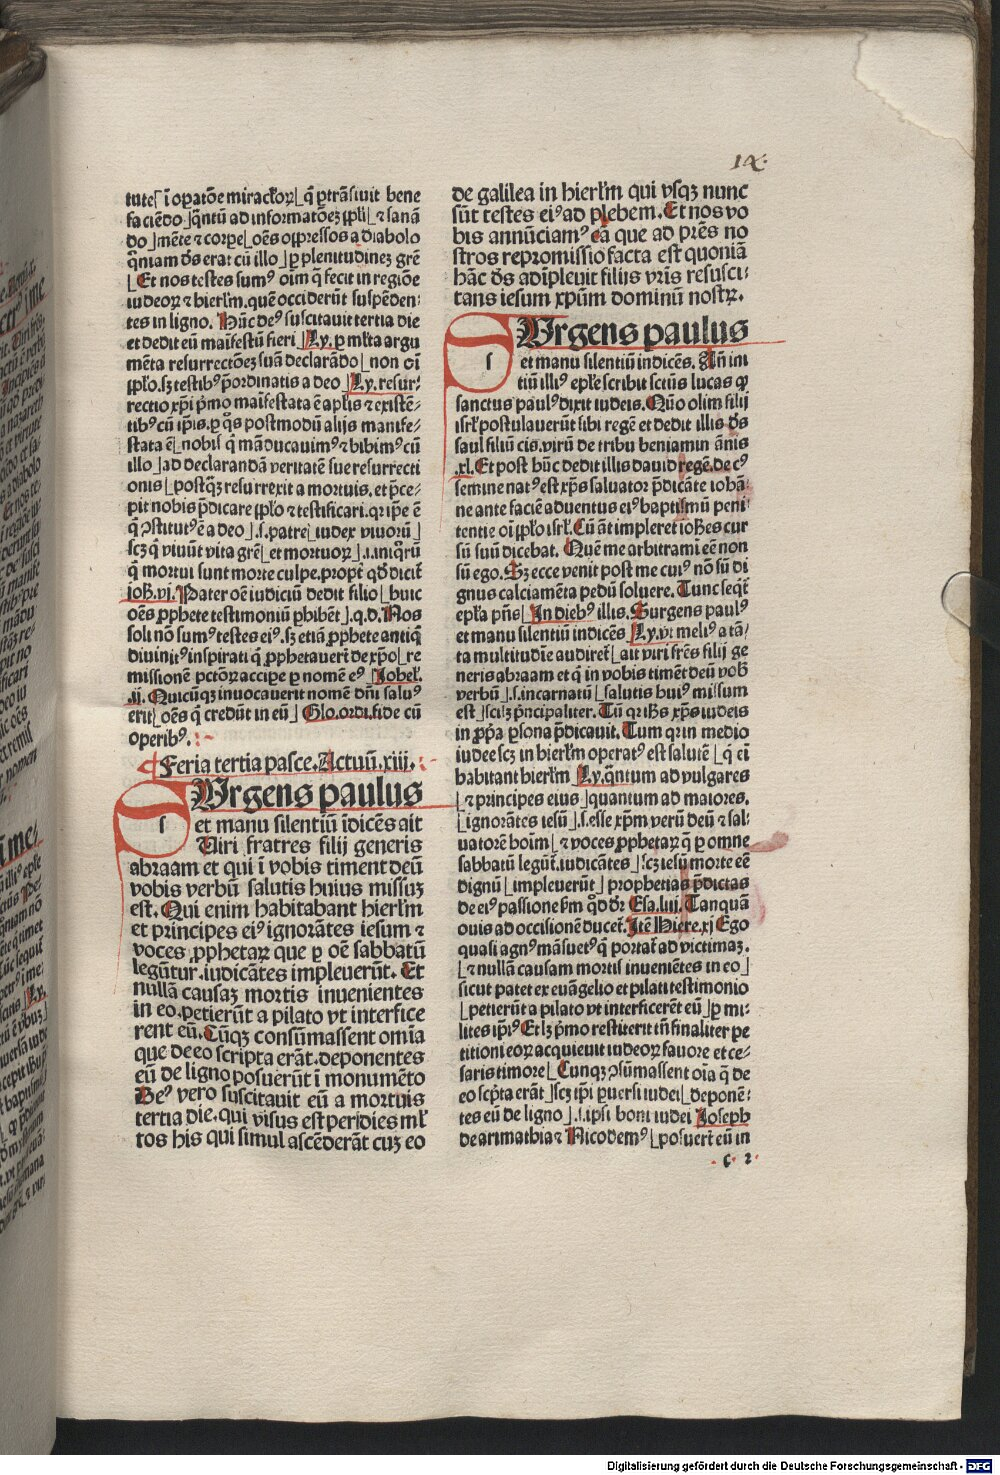 IX.
tuteſ ī oꝑatōe mirackoꝝ qͥ ꝑtrāſiuit bene
faciēdo qͣntū ad informatōeꝫ ſꝑli ⁊ ſanā
do mēte ⁊ corꝑe oēs oppreſſos a diabolo
qm̄iam dn̄s erat cū illo ꝑ plenitudineꝫ grē
Et nos teſtes ſumꝰ oīm que fecit in regiōe
iudeoꝝ ⁊ hierl̄m. quē occiderūt ſuſpēden⸗
tes in ligno. Hūc deꝰ ſuſcitauit tertia die
et dedit eū maīfeſtū fieri Ly. ꝑ ml̄ta argu
mēta reſurrectōeꝫ ſuā declarādo non oī
ſꝑlo. ſꝫ teſtibꝰ p̄ordinatis a deo Ly. reſur⸗
rectio xp̄i p̄mo maīfeſtata ē apl̄is ⁊ exiſtē⸗
tibꝰ cū ip̄is. ꝑ qͦs poſtmodū alijs manife⸗
ſtata ē nobiſ qͥ māducauimꝰ ⁊ bibimꝰ cū
illo ad declarandā veritatē ſue reſurrecti
onis poſtqͣꝫ reſurrexit a mortuis. et p̄ce⸗
pit nobis p̄dicare ſꝑlo ⁊ teſtificari. qꝛ ip̄e ē
qͥ ꝯſtitutꝰ ē a deo .ſ. patre iudex viuorū
ſcꝫ qͥ viuūt vita grē et mortuoꝝ .i. iniqͦrū
qͥ mortui ſunt morte culpe. propt̄ qd̄ dicit̄
ioh̄. vj. Pater oē iudiciū dedit filio huic
oēs ꝓphete teſtimoniū ꝑhibēt .q.d. Nos
ſoli nō ſumꝰ teſtes eiꝰ. ſꝫ etiā ꝓphete antiqͥ
diuinitꝰ inſpirati qͥ ꝓphetauerūt de xp̄o re
miſſionē pctōꝝ accipe ꝑ nomē eꝰ Johel̄.
.ij. Quicūqꝫ inuocauerit nomē dn̄i ſaluꝰ
erit oēs qͥ credūt in eū Glo. ordi. fide cū
operibꝰ.
Feria tertia paſce. Actuū. xiij.
SUrgens paulus
et manu ſilentiū īdicēs ait
Uiri fratres filij generis
abraam et qui ī vobis timent deū
vobis verbū ſalutis huius miſſuꝫ
eſt. Qui enim habitabant hierl̄m
et principes eiꝰ ignorātes ieſum ⁊
voces ꝓphetaꝝ que ꝑ oē ſabbatū
legūtur. iudicātes impleuerūt. Et
nullā cauſaꝫ mortis inuenientes
in eo. petierūt a pilato vt interfice
rent eū. Cūqꝫ conſūmaſſent omīa
que de eo ſcripta erāt. deponentes
eū de ligno poſuerūt ī monumēto
Deꝰ vero ſuſcitauit eū a mortuis
tertia die. qui viſus eſt per dies ml̄
tos his qui ſimul aſcēderāt cuꝫ eo
de galilea in hierl̄m qui vſqꝫ nunc
ſūt teſtes eiꝰ ad plebem. Et nos vo
bis annūciamꝰ eā que ad prēs no
ſtros repromiſſio facta eſt quoniā
hāc dn̄s adīpleuit filijs vr̄is reſuſci⸗
tans ieſum xp̄um dominū noſtꝝ.
SUrgens paulus
et manu ſilentiū indicēs. An̄ ini
tiū illiꝰ epl̄e ſcribit ſctūs lucas qͥ
ſanctus paulꝰ dixit iudeis. Qn̄o olim filij
iſrl̄ poſtulauerūt ſibi regē et dedit illis dn̄s
ſaul filiū cis. virū de tribu beniamin ānis
.xl. Et poſt hūc dedit illis dauid regē. de cꝰ
ſemine natꝰ eſt xp̄s ſaluator p̄dicāte iohā⸗
ne ante faciē aduentus eiꝰ baptiſmū peni
tentie oī ſꝑlo iſrl̄. Cū āt impleret ioh̄es cur
ſū ſuū dicebat. Quē me arbitrami eē non
ſū ego. Sꝫ ecce venit poſt me cuiꝰ nō ſū di
gnus calciamēta pedū ſoluere. Tunc ſeqt̄
epl̄a pn̄s In diebꝰ illis. Surgens paulꝰ
et manu ſilentiū indicēs Ly. vt meliꝰ a tā⸗
ta multitudīe audiret̄ ait viri frēs filij ge
neris abraam et qͥ in vobis timēt deū vob̄
verbū .ſ. incarnatū ſalutis huiꝰ miſſum
eſt ſcilꝫ p̄ncipaliter. Tū qꝛ ih̄s xp̄s iudeis
in ꝓp̄a ꝑſona p̄dicauit. Tum qꝛ in medio
iudee ſcꝫ in hierl̄m operatꝰ eſt ſalutē qͥ eī
habitant hierl̄m Ly. qͣntum ad vulgares
⁊ principes eius quantum ad maiores.
ignorātes ieſū .ſ. eſſe xp̄m verū deū ⁊ ſal⸗
uatorē hoīm ⁊ voces ꝓphetaꝝ qͥ ꝑ omne
ſabbatū legūt̄. iudicātes ſcꝫ ieſū morte eē
dignū impleuerūt prophetias p̄dictas
de eiꝰ paſſione ſm̄ qd̄ dr̄ Eſa. liij. Tanquā
ouis ad occiſionē ducet̄. Itē Hiere. xj Ego
quaſi agnꝰ māſuetꝰ qͥ portat̄ ad victimaꝫ.
⁊ nullā cauſam mortis inueniētes in eo
ſicut patet ex euāgelio et pilati teſtimonio
petierūt a pilato vt interficerēt eū ꝑ mi⸗
lites ip̄iꝰ Et lꝫ p̄mo reſtiterit tn̄ finaliter pe
titioni eoꝝ acquieuit iudeoꝝ fauore et ce⸗
ſaris timore Cunqꝫ ꝯſūmaſſent oīa qͥ de
eo ſcp̄ta erāt ſcꝫ ip̄i ꝑuerſi iudei deponē⸗
tes eū de ligno .ſ. ipſi boni iudei Joſeph
de arimathia ⁊ Nicodemꝰ poſuer̄t eū in
c 2
Digitalisierung gefördert durch die Deutsche Forschungsgemeinschaft - DFG